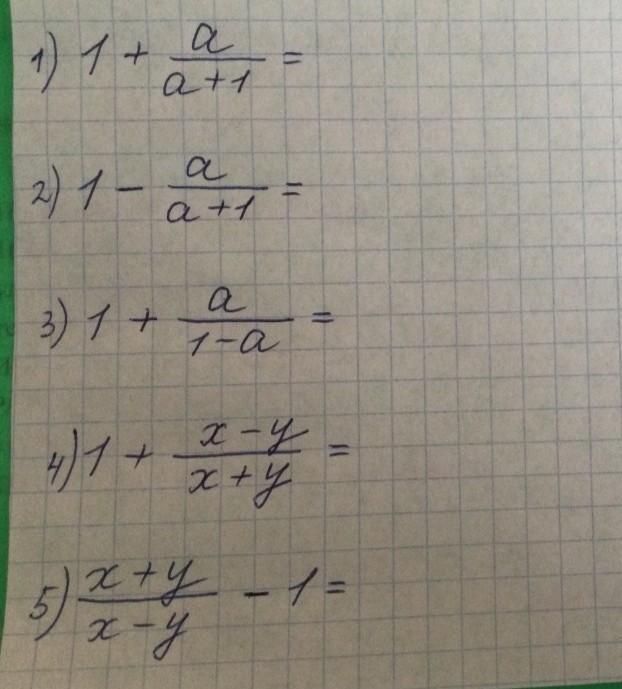 1) 1 + a/(a+1) =
2) 1 - a/(a+1) =
3) 1 + a/(1-a) =
4) 1 + (x-y)/(x+y) =
5) (x+y)/(x-y) - 1 =